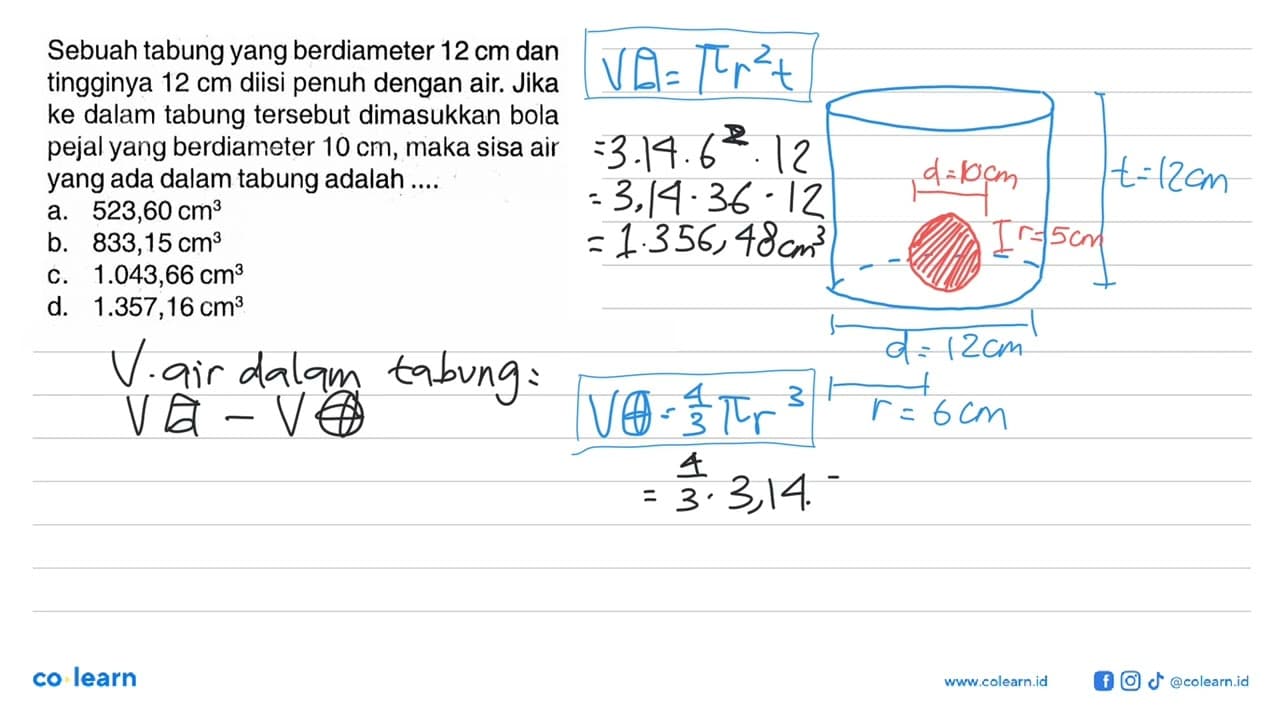 Sebuah tabung yang berdiameter 12 cm dan
tingginya 12 cm diisi penuh dengan air. Jika
ke dalam tabung tersebut dimasukkan bola
pejal yang berdiameter 10 cm, maka sisa air
yang ada dalam tabung adalah ....
a. 523,60 cm³
b. 833,15 cm³
c. 1.043,66 cm³
d. 1.357,16 cm³
V = πr²t
= 3.14.6².12
= 3,14.36.12
= 1.356,48 cm³
d=10cm
r=5cm
t=12cm
d=12cm
r=6cm
V.air dalam tabung:
V - V
V = 4/3 πr³
= 4/3 . 3,14.
co learn
www.colearn.id
@colearn.id